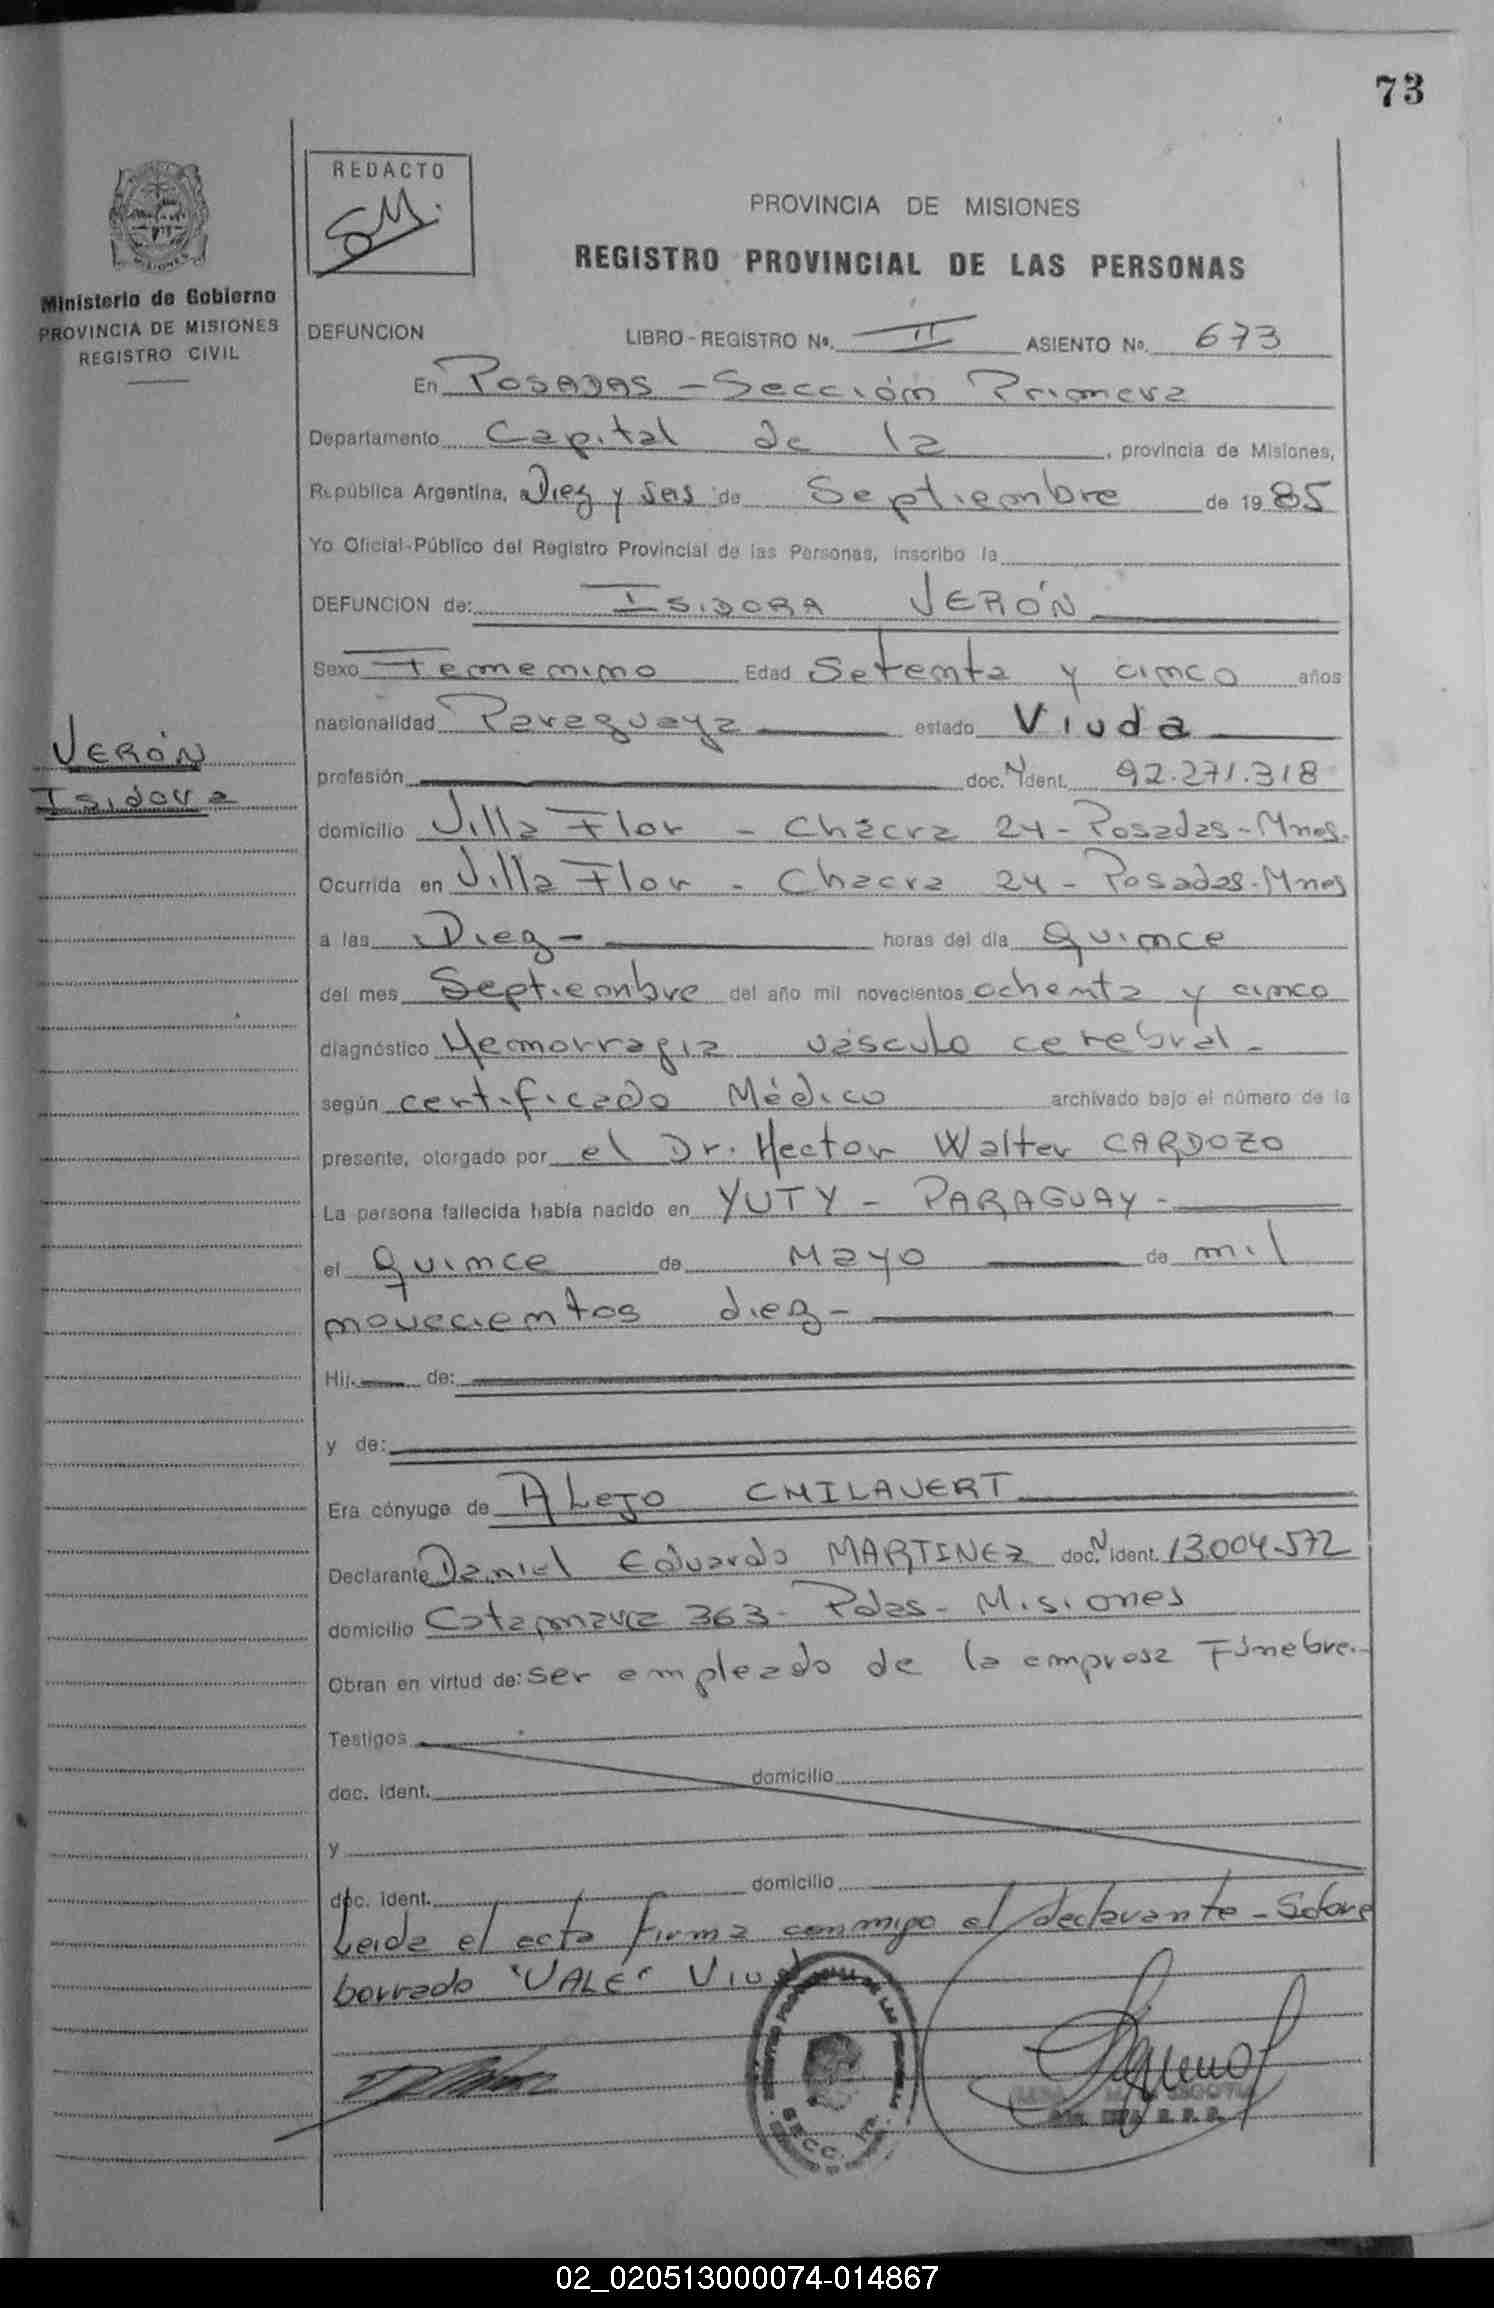 73
REDACTO
PROVINCIA DE MISIONES
REGISTRO PROVINCIAL DE LAS PERSONAS
MISIONES
Ministerio de Gobierno
PROVINCIA DE MISIONES
REGISTRO CIVIL
DEFUNCION LIBRO-REGISTRO Nº. II ASIENTO Nº. 673
En POSADAS - Sección Primera
Departamento Capital de la , provincia de Misiones,
República Argentina, Diez y seis de Septiembre de 1985
Yo Oficial-Público del Registro Provincial de las Personas, inscribo la
DEFUNCION de: ISIDORA VERÓN
Sexo Femenino Edad Setenta y cinco años
nacionalidad Paraguaya estado Viuda
VERÓN
Isidora
profesión doc. N ident. 92.271.318
domicilio Villa Flor - Chacra 24 - Posadas - Mnes.
Ocurrida en Villa Flor - Chacra 24 - Posadas - Mnes
a las Diez - horas del día Quince
del mes Septiembre del año mil novecientos ochenta y cinco
diagnóstico Hemorragia vásculo cerebral -
según certificado Médico archivado bajo el número de la
presente, otorgado por el Dr. Hector Walter CARDOZO
La persona fallecida había nacido en YUTY - PARAGUAY -
el Quince de Mayo de mil
novecientos diez -
Hij. de:
y de:
Era cónyuge de ALEJO CHILAVERT
Declarante Daniel Eduardo MARTINEZ doc. N ident. 13.004.572
domicilio Catamarca 363 - Pdas - Misiones
Obran en virtud de: ser empleado de la empresa Fúnebre.-
Testigos
doc. ident. domicilio
y
doc. ident. domicilio
Leida el acta firma conmigo el declarante - Sobre
borrado "VALE" Viud
SECC. 1ª
02_020513000074-014867